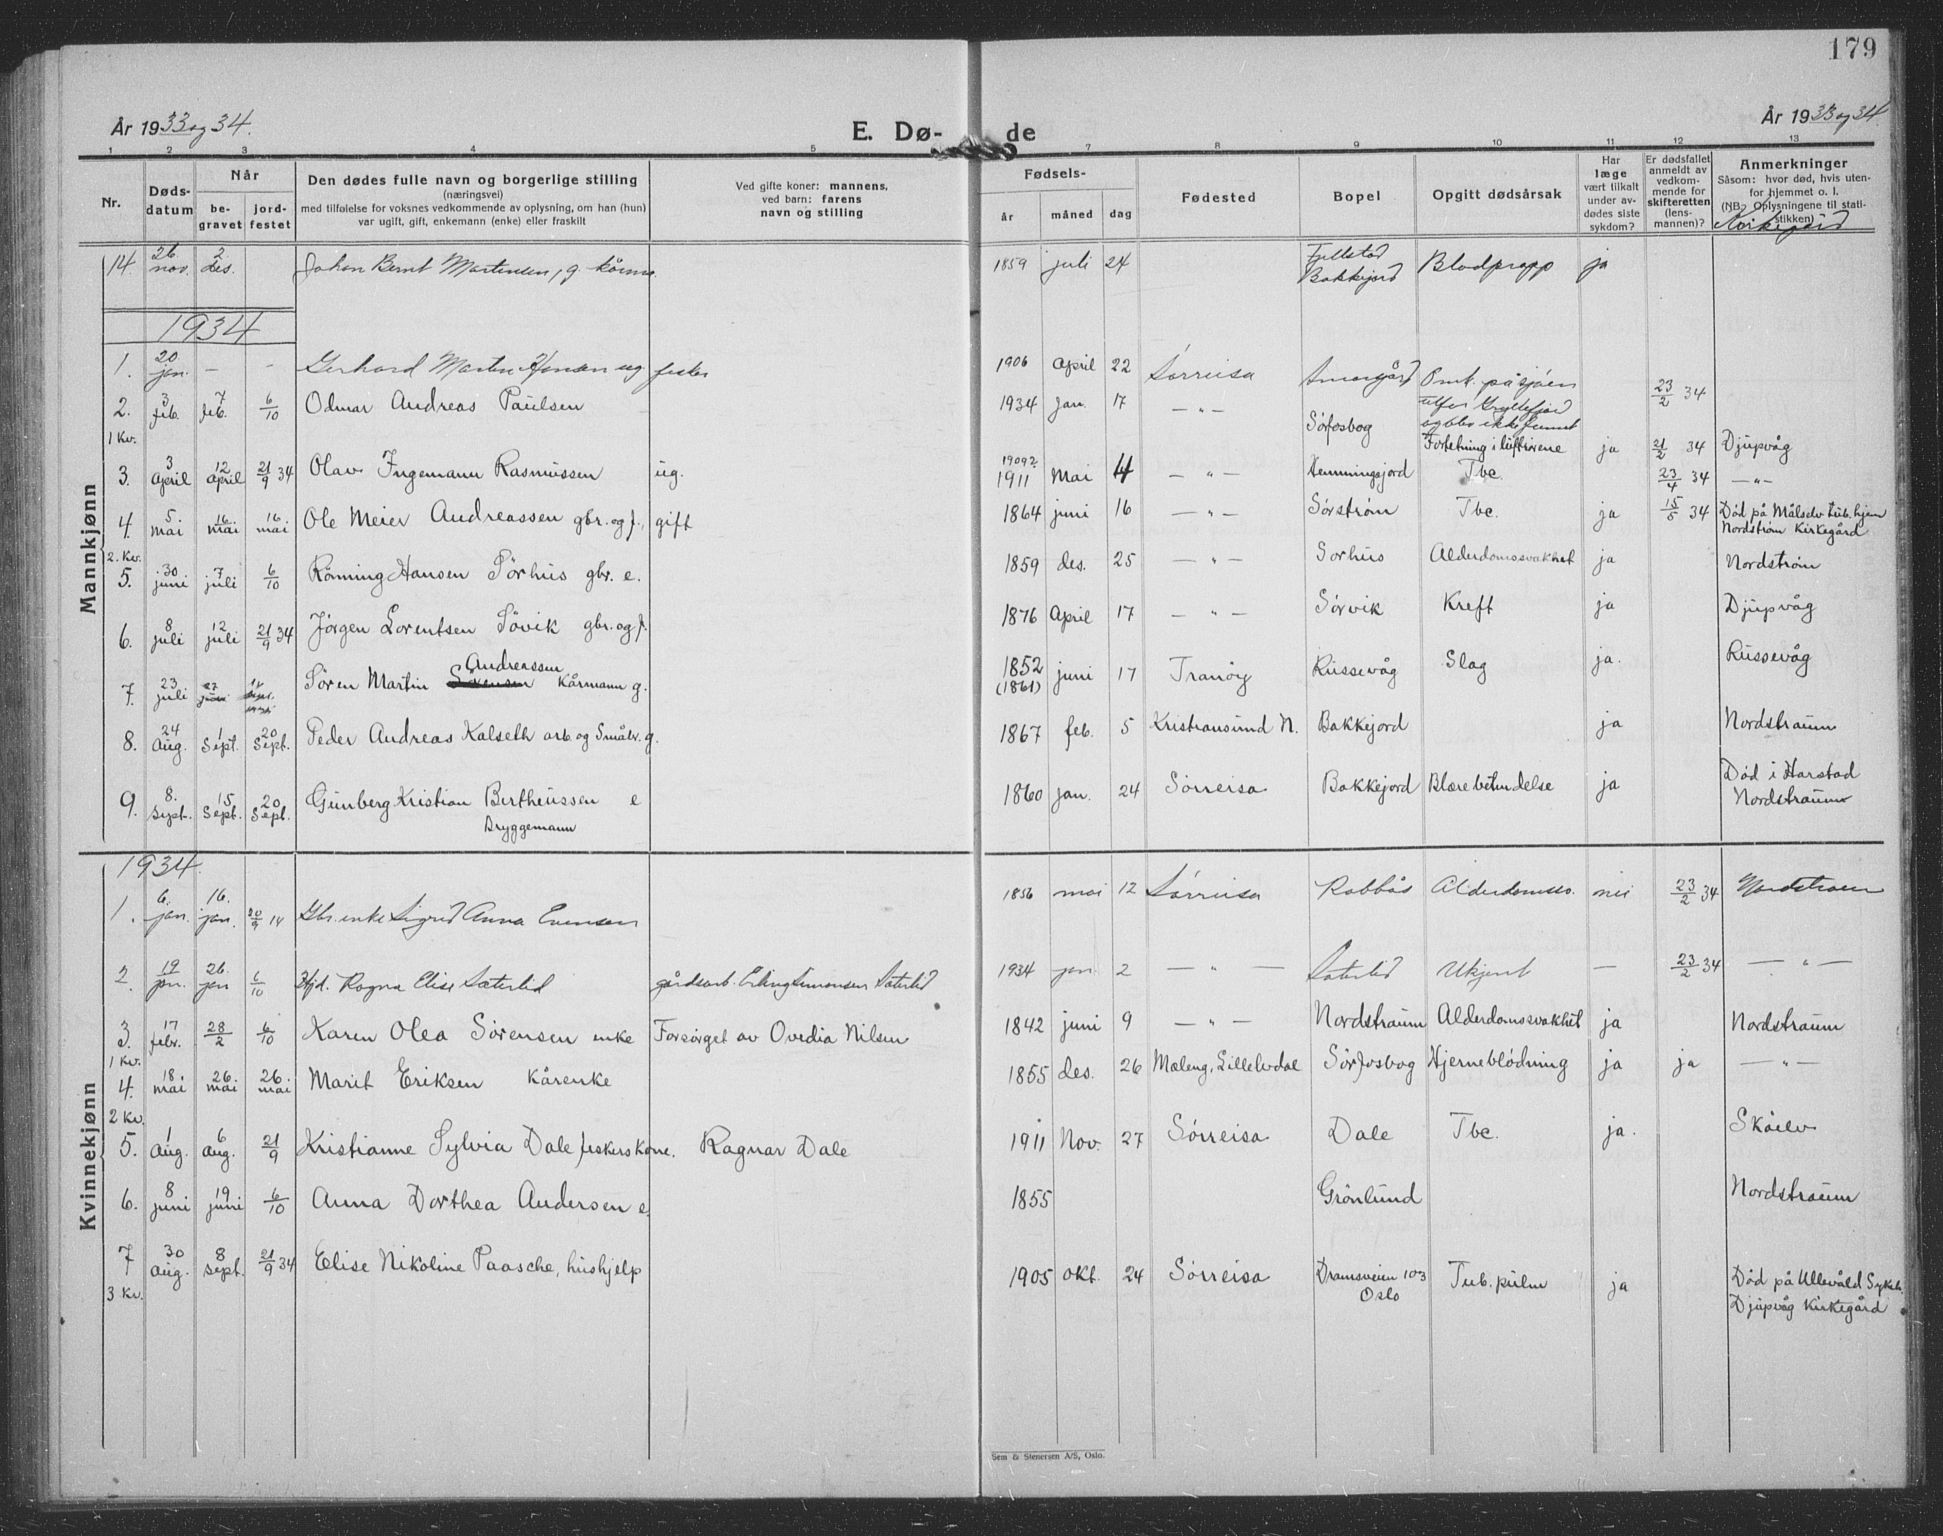 179
År 1933 og 34.
E. Dø-
de
År 1933 og 34
1 2 3 4 5 7 8 9 10 11 12 13
Nr.
Døds-
datum
Når
be-
gravet
jord-
festet
Den dødes fulle navn og borgerlige stilling
(næringsvei)
med tilføielse for voksnes vedkommende av oplysning, om han (hun)
var ugift, gift, enkemann (enke) eller fraskilt
Ved gifte koner: mannens,
ved barn: farens
navn og stilling
Fødsels-
år måned dag
Fødested
Bopel
Opgitt dødsårsak
Har
læge
vært tilkalt
under av-
dødes siste
sykdom?
Er dødsfallet
anmeldt av
vedkom-
mende for
skifteretten
(lens-
mannen)?
Anmerkninger
Såsom: hvor død, hvis uten-
for hjemmet o. l.
(NB. Oplysningene til stati-
stikken)
Kirkegård
Mannkjønn
14. 26 nov. 2 des. Johan Bernt Martinsen, g. kårm. 1859 juli 24 Fjellstad Bakkejord Blodpropp ja
1934
1. 20 jan. — - Gerhard Martin Hansen ug fisker 1906 April 22 Sørreisa Omk. på sjøen utfor Gryllefjord og blev ikke funnet 23/2 34
2. 3 feb. 7 feb. 6/10 Odmar Andreas Paulsen 1934 Jan. 17 — „ — Sörfosbog Fortetning i luftrörene ja 21/2 34 Djupvåg
1 Kv.
3. 3 April 12 April 21/9 34 Olav Ingemann Rasmussen ug. 1909? 1911 Mai 4 — „ — Hemmingsjord Tbc. 23/4 34 — „ —
4. 5 mai 16 mai 16 mai Ole Meier Andreassen gbr. og f., gift 1864 juni 16 — „ — Sørstrøm Tbc. ja 15/5 34 Död på Målselv tub. hjem Nordstrøm Kirkegård
2. Kv.
5. 30 juni 7 juli 6/10 Rönning Hansen Sörhus gbr. e. 1859 des. 25 — „ — Sorhus Alderdomssvakhet ja Nordstrøm
6. 8 juli 12 juli 21/9 34 Jörgen Lorentsen Sövik gbr. og f. 1876 April 17 — „ — Sörvik Kreft ja Djupvåg
7. 23 juli 27 Sören Martin Andreassen Kårmann g. 1852 (1861) juni 17 Tranöy Russevåg Slag ja. Russevåg
8. 24 Aug. 1 Sept. 20 Sept. Peder Andreas Kalseth arb. og Småbr. g. 1867 feb. 5 Kristiansund N. Bakkejord ja Nordstraum
9. 8. Sept. 15 Sept. 20 Sept. Gunberg Kristian Bertheussen e Bryggemann 1860 jan. 24 Sörreisa Bakkejord Blærebetendelse ja Död i Harstad Nordstraum
Kvinnekjønn
1934
1. 6. jan. 16. jan. Gbr. enke Sigrid Anna Evensen 1856 mai 12 Sørreisa Rabbås Alderdomssv. nei 23/2 34 Nordstraum
2. 19 jan. 26. jan 6/10 Hjd. Ragna Elise Sæterlid gårdsarb. Erling Simonsen Sæterlid 1934 jan. 2 — „ — Sæterlid Ukjent — 23/2 34 — „ —
3. 17 febr. 28/2 6/10 Karen Olea Sörensen enke Forsörget av Ovedia Nilsen 1842 juni 9 — „ — Nordstraum Alderdomssvakhet ja Nordstraum
1 Kv.
4. 18 mai 26 mai 26 mai Marit Eriksen Kårenke 1855 des. 26 Mæleng, Lillelvdal Sörfosbog Hjerneblödning ja ja — „ —
2 Kv.
5. 1 Aug. 6 Aug. 21/9 Kristianne Sylvia Dale fiskerskone. Ragnar Dale 1911 Nov. 27 Sörreisa Dale Tbc. ja. Sköelv
6. 8 juni 19 juni 6/10 Anna Dorthea Andersen e. 1855 Grönlund Nordstraum
7 30 Aug. 8 Sept. 21/9 34 Elise Nikoline Paasche, hushjelp 1905 Okt. 24 Sörreisa Dramsveien 103 Oslo Tub. pulm ja Död på Ullevåld Sykeh. Djupvåg Kirkegård
3 Kv.
Sem & Stenersen A/S, Oslo.